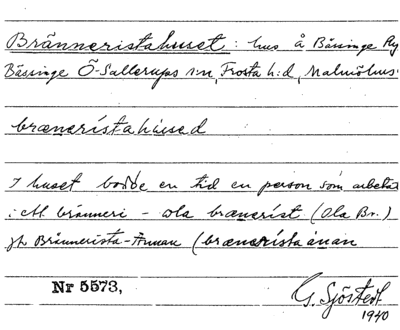 Bränneristahuset: hus å Bässinge Ry
Bässinge Ö-Sallerups sn, Frosta h:d, Malmöhus
brænerístahused
I huset bodde en tid en person som arbeta
i ett bränneri - ola brænerist (Ola Br.)
jfr Brännerista-Annan (brænerísta ánan
Nr 5573,
G. Sjöstedt
1940